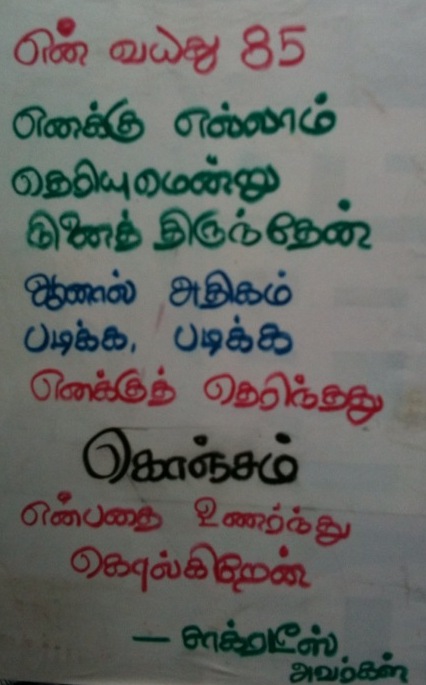 என் வயது 85
எனக்கு எல்லாம்
தெரியுமென்று
நினைத் திருந்தேன்
ஆனால் அதிகம்
படிக்க, படிக்க
எனக்குத் தெரிந்தது
கொஞ்சம்
என்பதை உணர்ந்து
கொள்கிறேன்
— சாக்ரடீஸ்
அவர்கள்